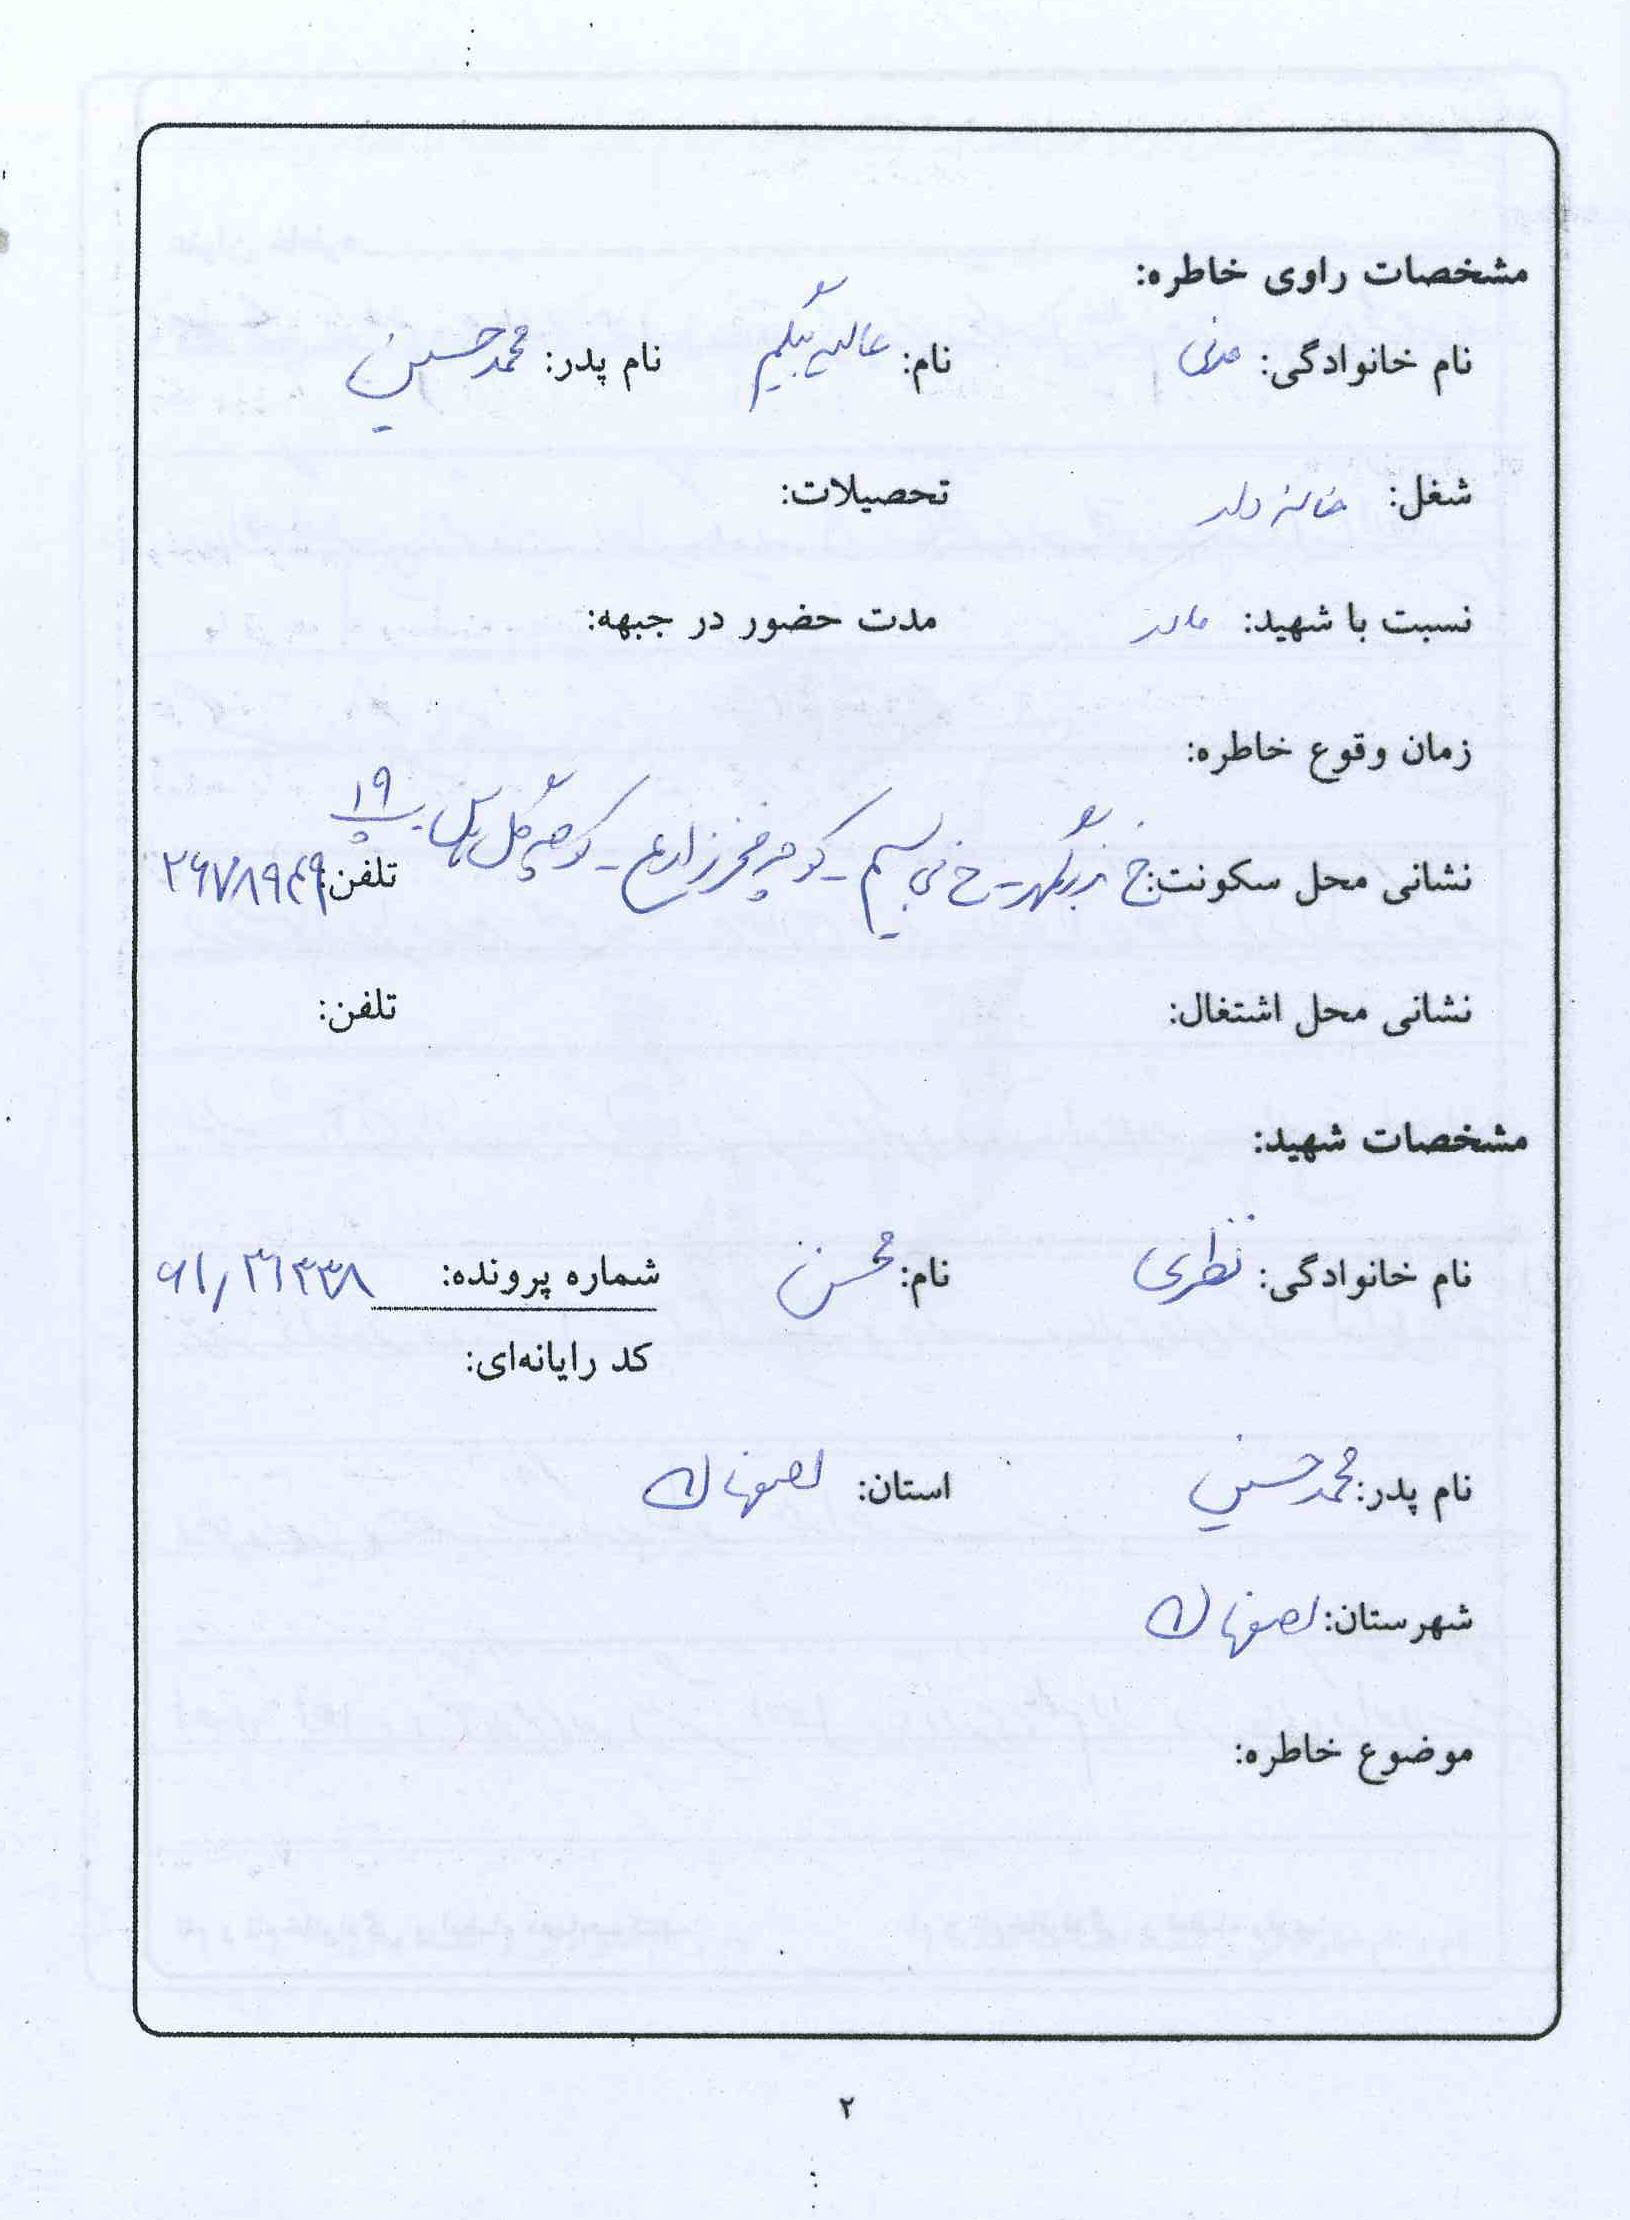 مشخصات راوی خاطره:
نام خانوادگی: مدنی نام: عالیه بیگم نام پدر: محمد حسین
شغل: خانه دار تحصیلات:
نسبت با شهید: مادر مدت حضور در جبهه:
زمان وقوع خاطره:
نشانی محل سکونت: خ بزرگمهر - خ - کوچه - کوچه گل یاس پ ۱۹ تلفن: ۲۶۷۸۹۴۹
نشانی محل اشتغال: تلفن:
مشخصات شهید:
نام خانوادگی: نظری نام: محسن شماره پرونده: ۶۱/۳۶۳۳۸
کد رایانه‌ای:
نام پدر: محمد حسین استان: اصفهان
شهرستان: اصفهان
موضوع خاطره:
۲